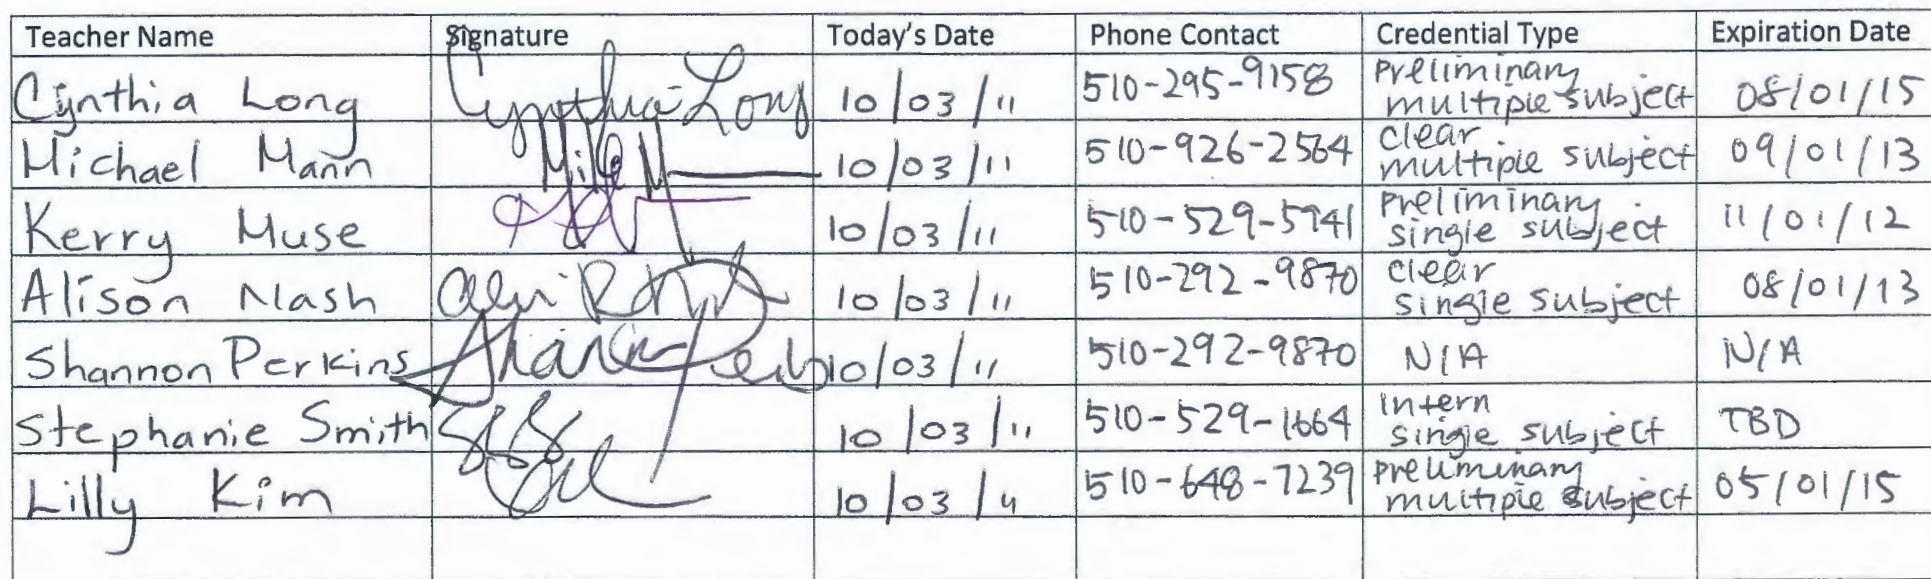 Teacher Name Signature Today's Date Phone Contact Credential Type Expiration Date
Cynthia Long Cynthia Long 10/03/11 510-295-9158 preliminary multiple subject 08/01/15
Michael Mann Mike M 10/03/11 510-926-2564 clear multiple subject 09/01/13
Kerry Muse 10/03/11 510-529-5941 preliminary single subject 11/01/12
Alison Nash 10/03/11 510-292-9870 clear single subject 08/01/13
Shannon Perkins 10/03/11 510-292-9870 N/A N/A
Stephanie Smith 10/03/11 510-529-1664 intern single subject TBD
Lilly Kim 10/03/11 510-648-7239 preliminary multiple subject 05/01/15